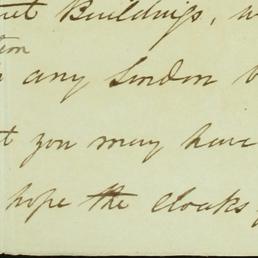 Buildings,
any London
you may have
hope the cloaks